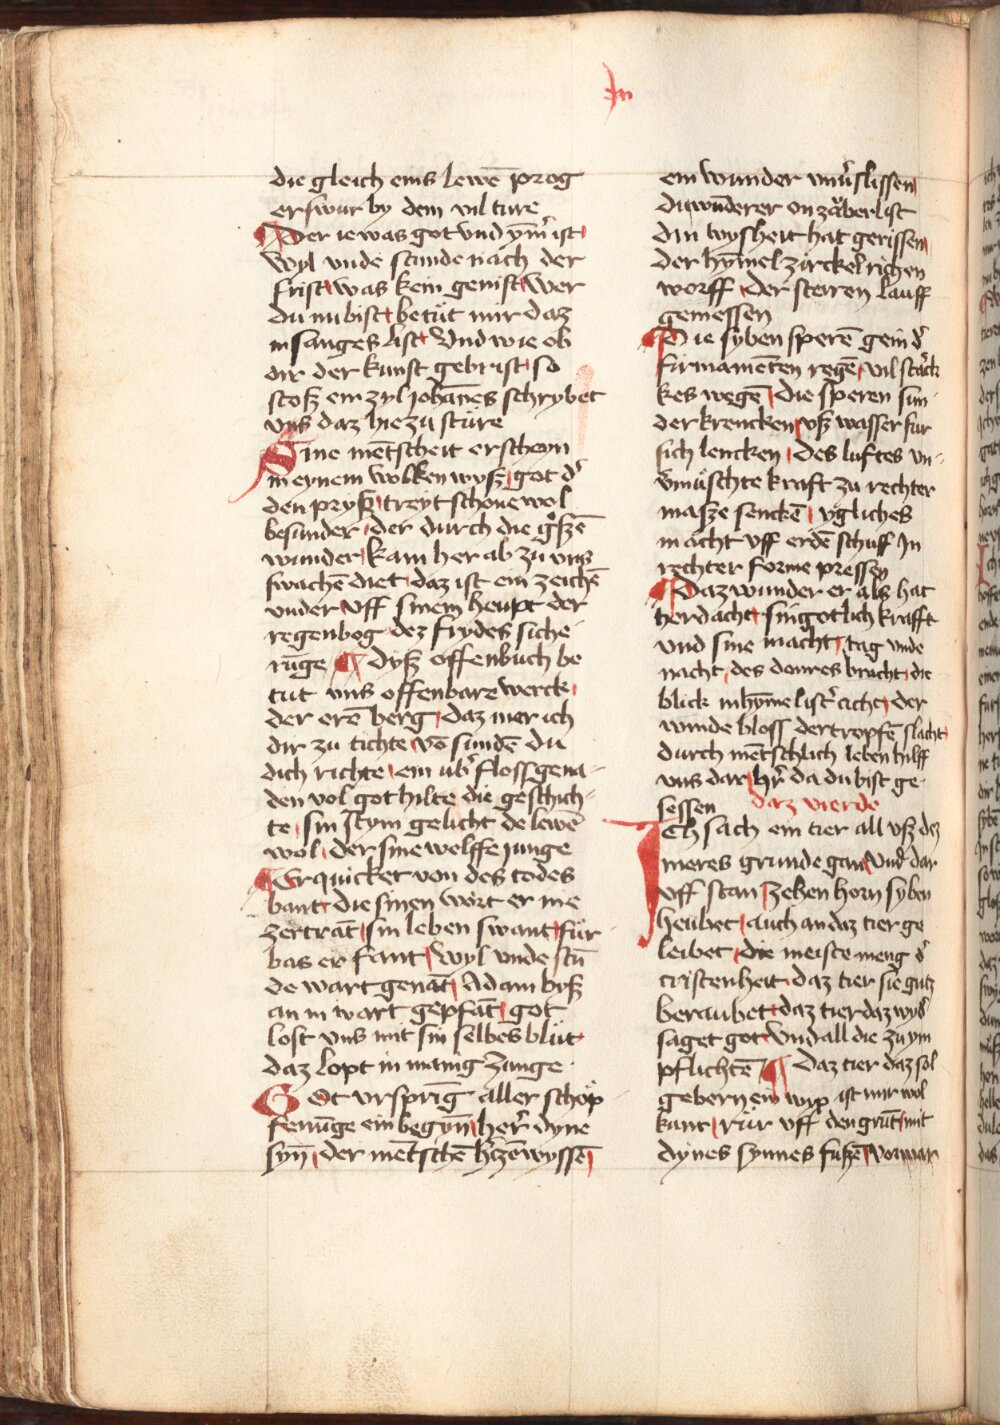 In
die gleich eins lewē prog
er swur by dem vil ture
Der ie was got vnd ym̄ ist
Wyl vnde stunde nach der
frist was kein genist wer
du nu bist betüt mir daz
in sanges list Vnd wie ob
dir der kunst gebrist so
stosz ein zyl Johānes schrybet
vns daz hie zu stüre
Sine mētscheit erschein
in eynem wolken wysz got d͛
den prysz treyt schone wol
besunder der durch die groszē
wunder kam her ab zu vns
swachē diet daz ist ein zeichē
vnder vff sinem heupt der
regenbog dez frydes siche
rūge dysz offenbuch be
tut vns offenbare werck
der erē berg daz mer ich
dir zu tichte vō sundē du
dich richte ein ub͛flossgena-
den vol got hilte die geschich-
te sin stym gelicht de lewē
wol der sine welffe junge
Erquicket von des todes
bant die sinen wort er nie
zertrāt sin leben swant für
bas er fant wyl vnde stū
de wart genāt Adam bysz
an in wart gepfāt got
lost vns mit sin selbes blüt
daz lopt in manig zunge
Got vrsprīg aller schöp
fenūge ein begyn her͛ dyne
syn̄ der mētschē h͛tzē wyssē
ein wunder vnu͛slissen
du wūderer on zäberlist
din wysheit hat gerissen
der hȳmel zirckel richen
worff der sterren lauff
gemessen
Die syben sperē gein d͛
firmamētten regē vil starck
kes wegē die speren sun-
der krencken vsz wasser für
sich lencken des luftes vn-
v͛müschte kraft zu rechter
masze senckē ygliches
macht vff erdē schuff In
rechter forme pressen
Daz wunder er als hat
herdacht sin gotlich krafft
vnd sine macht tag vnde
nacht des donres bracht die
blick in hȳmelist͛ achte der
winde bloss der tropfē slacht
durch mētschlich leben hilff
vns dar h͛r da du bist ge-
sessen daz vierde
Ich sach ein tier all vsz dez
meres grunde gan Vnd͛ dar
vff stan zehen horn syben
heubet auch an daz tier ge
leibet die meiste meng d͛
cristenheit daz tier sie gutz
beraubet daz tier daz wyd͛
saget got Vnd all die zu ym
pflichtē Daz tier daz sol
gebern ein wip ist mir wol
kunt rür vff den grūt mit
dynes synnes fuszē vorwar